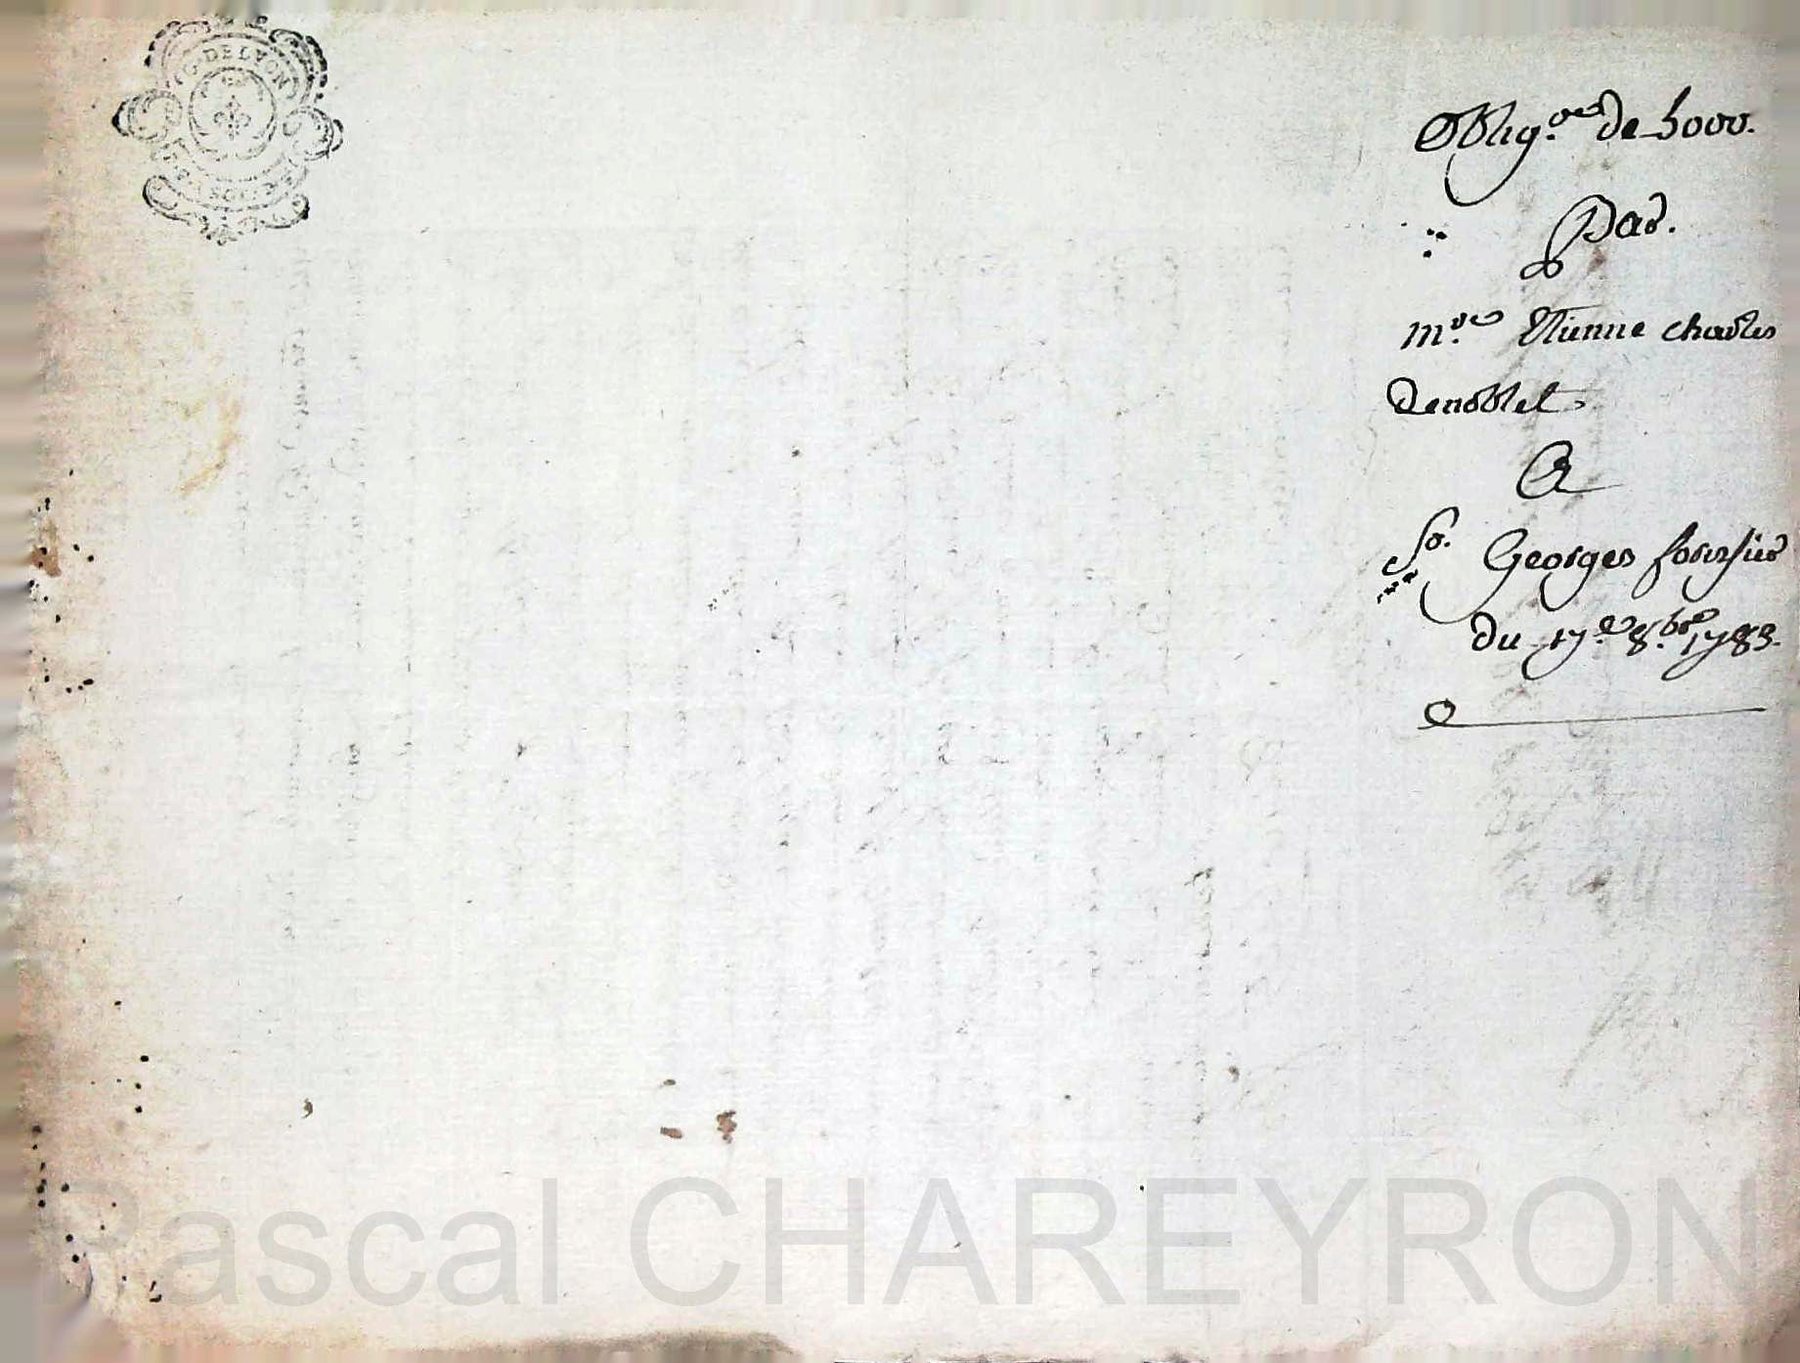 G. DE LYON
Oblig.on de 5000.
Par.
m.re Etienne charles
Denoblet.
A
Sr. Georges forestier
du 17.e 8.bre 1783.
Pascal CHAREYRON